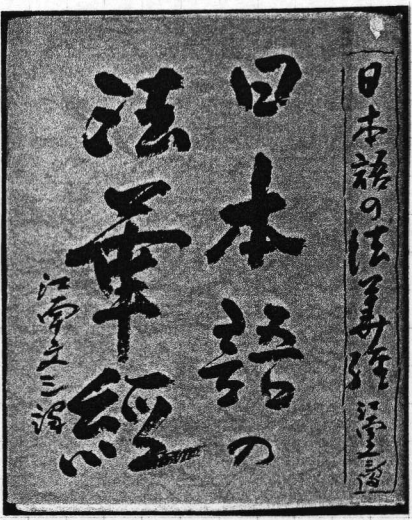 日本語の法華経 江南文三譯
日本語の
法華經
江南文三譯